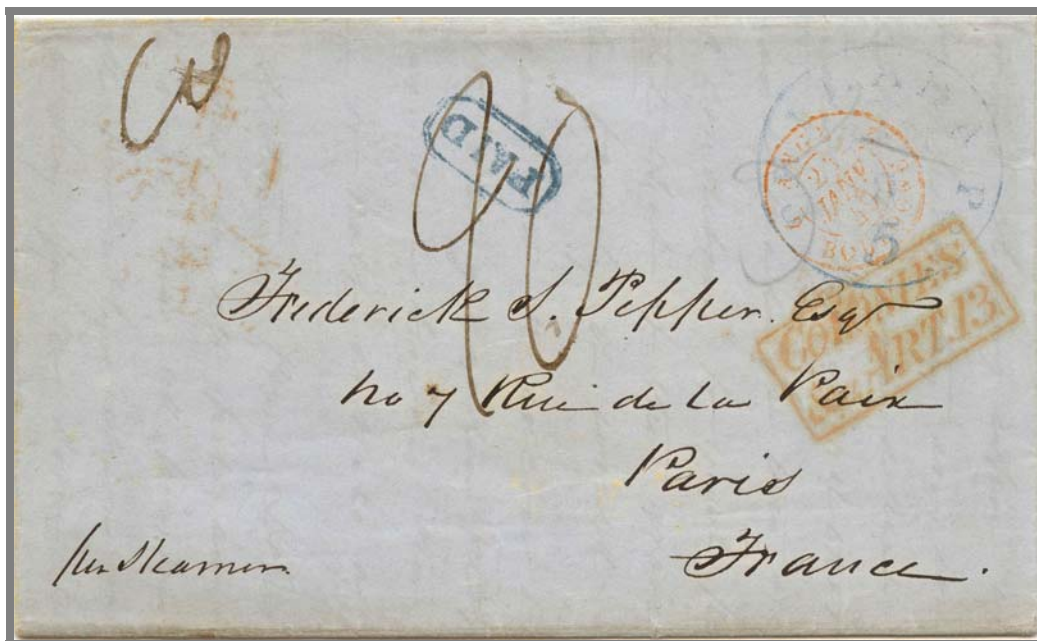 PAID
20
5
COLONIES
ART.13
Frederick S. Pepper. Esqr
No 7 Rue de la Paix
Paris
France.
per Steamer